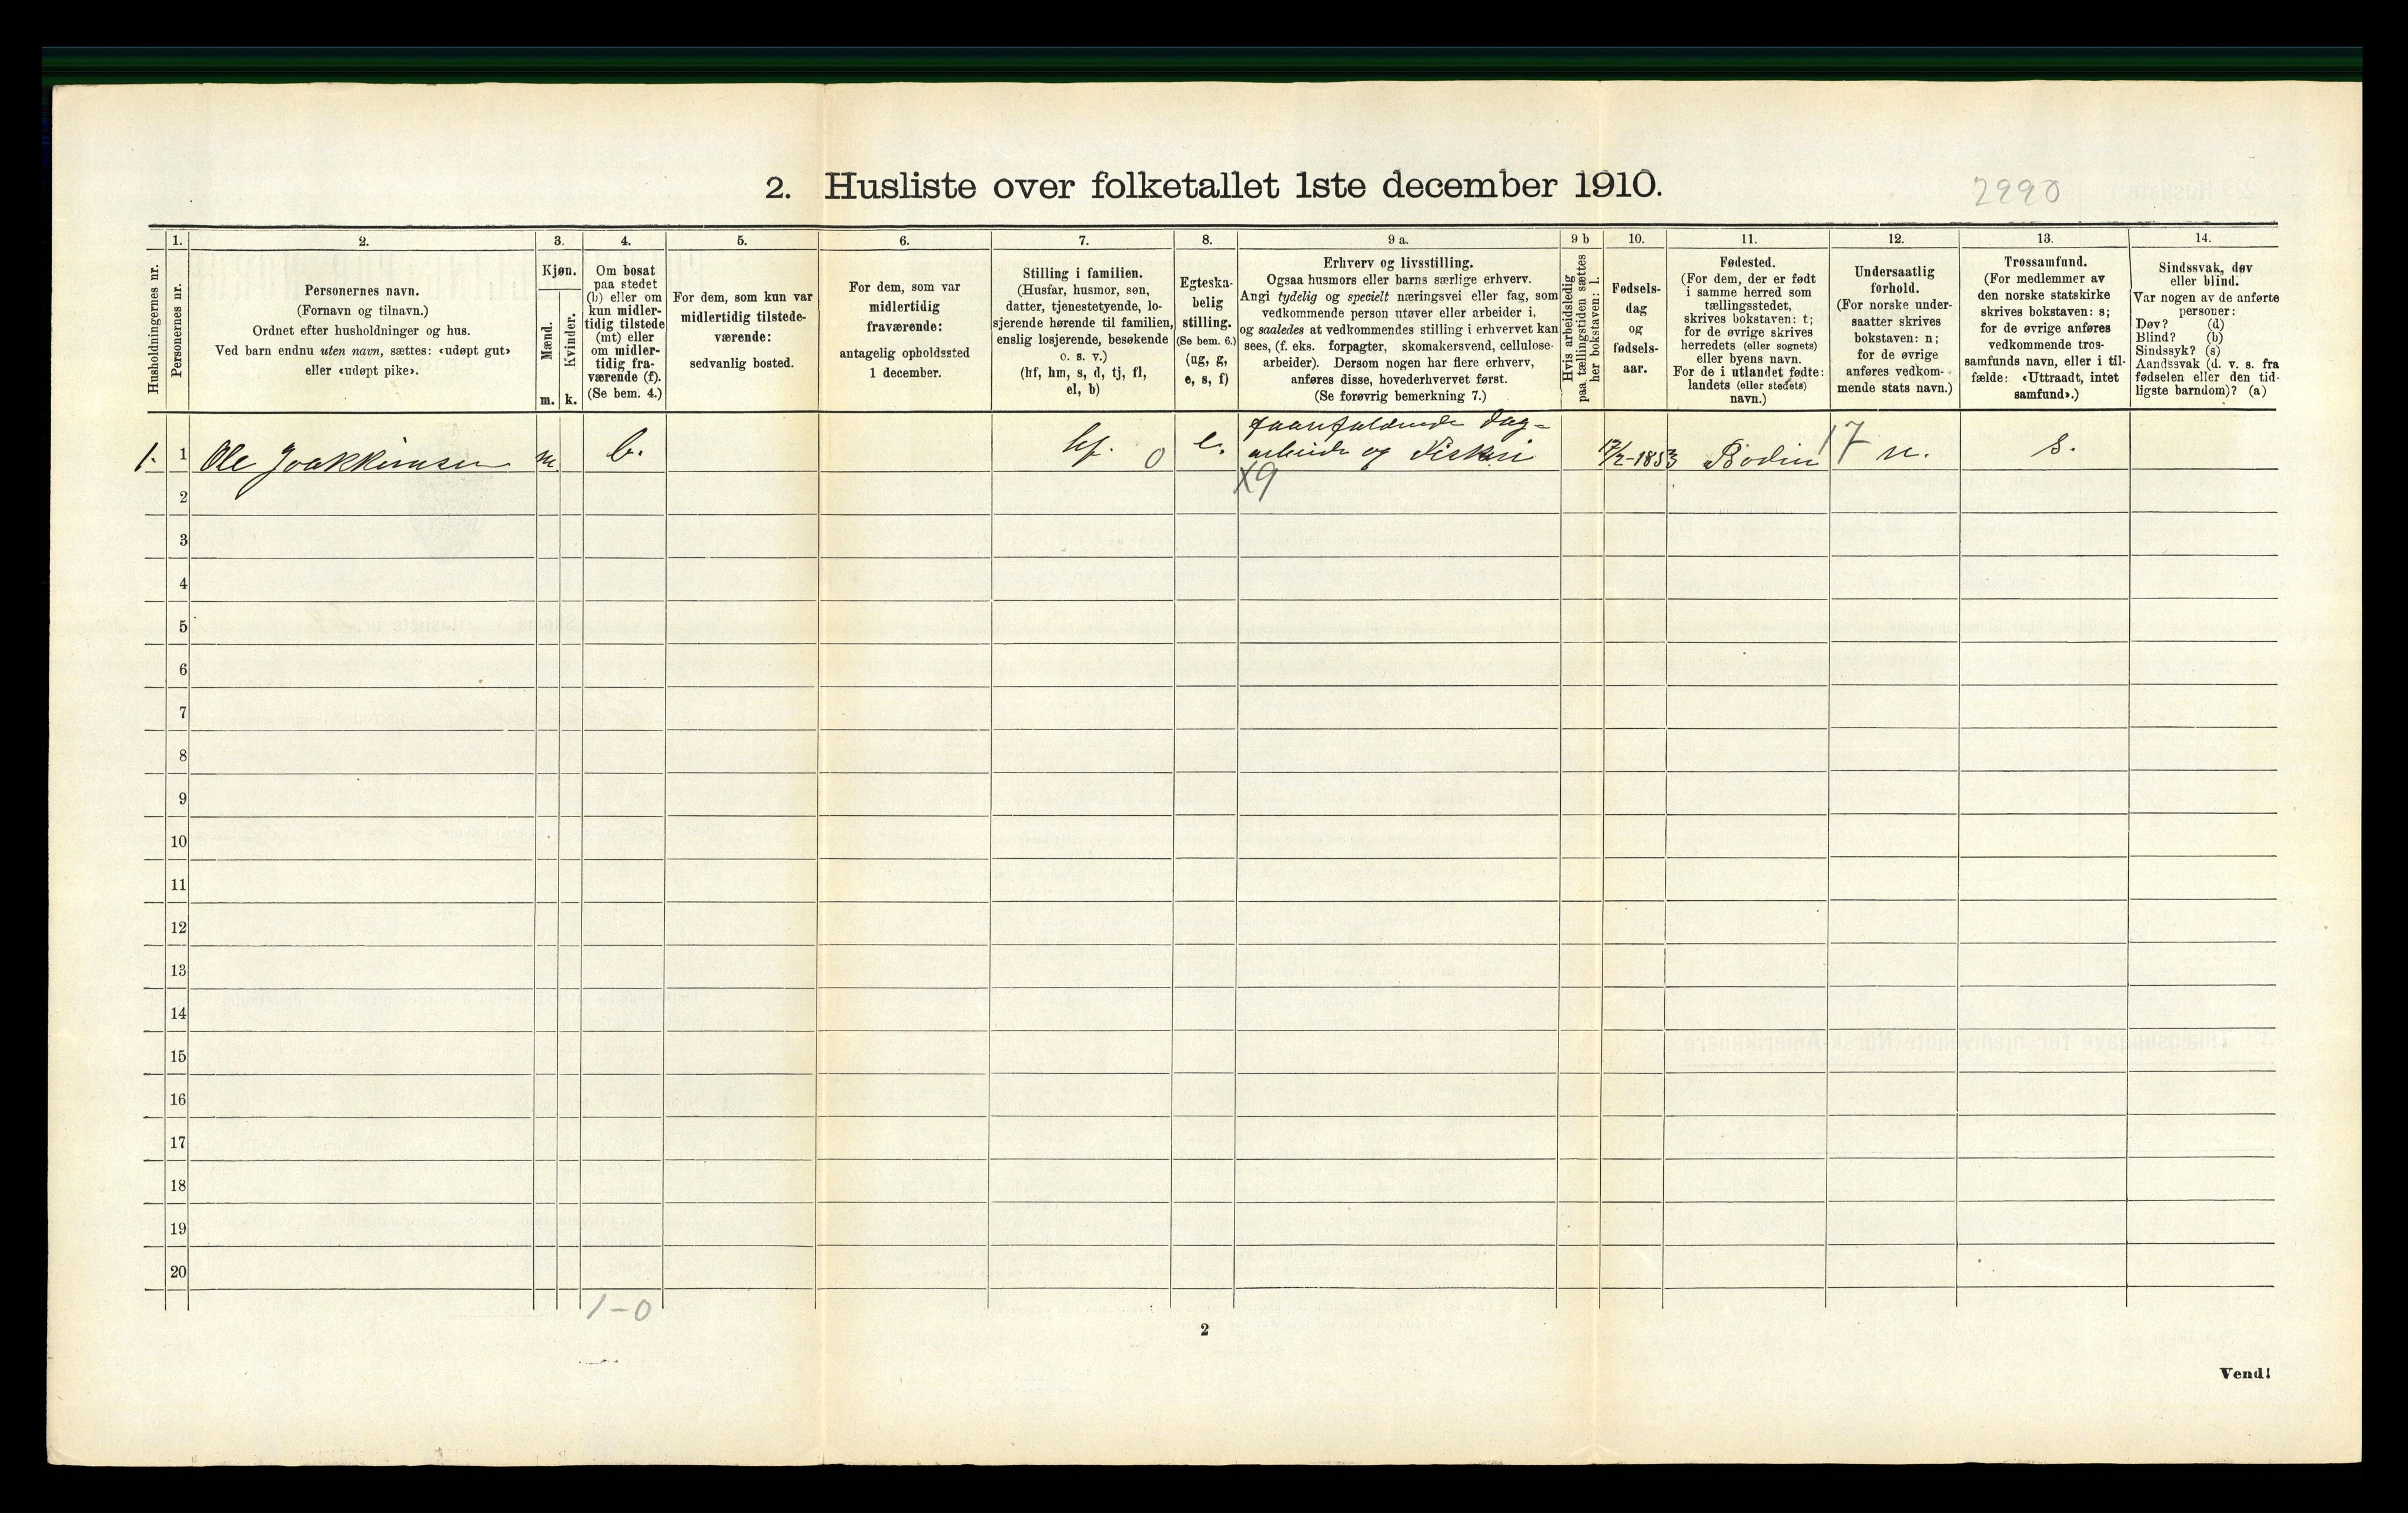 2. Husliste over folketallet 1ste december 1910.
2990
Husholdningernes nr.
1.
Personernes nr.
2.
Personernes navn.
(Fornavn og tilnavn.)
Ordnet efter husholdninger og hus.
Ved barn endnu uten navn, sættes: «udøpt gut»
eller «udøpt pike».
3.
Kjøn.
Mænd.
Kvinder.
m. k.
4.
Om bosat
paa stedet
(b) eller om
kun midler-
tidig tilstede
(mt) eller
om midler-
tidig fra-
værende (f).
(Se bem. 4.)
5.
For dem, som kun var
midlertidig tilstede-
værende:
sedvanlig bosted.
6.
For dem, som var
midlertidig
fraværende:
antagelig opholdssted
1 december.
7.
Stilling i familien.
(Husfar, husmor, søn,
datter, tjenestetyende, lo-
sjerende hørende til familien,
enslig losjerende, besøkende
o. s. v.)
(hf, hm, s, d, tj, fl,
el, b)
8.
Egteska-
belig
stilling.
(Se bem. 6.)
(ug, g,
e, s, f)
9 a.
Erhverv og livsstilling.
Ogsaa husmors eller barns særlige erhverv.
Angi tydelig og specielt næringsvei eller fag, som
vedkommende person utøver eller arbeider i,
og saaledes at vedkommendes stilling i erhvervet kan
sees, (f. eks. forpagter, skomakersvend, cellulose-
arbeider). Dersom nogen har flere erhverv,
anføres disse, hovederhvervet først.
(Se forøvrig bemerkning 7.)
9 b
Hvis arbeidsledig
paa tællingstiden sættes
her bokstaven: l.
10.
Fødsels-
dag
og
fødsels-
aar.
11.
Fødested.
(For dem, der er født
i samme herred som
tællingsstedet,
skrives bokstaven: t;
for de øvrige skrives
herredets (eller sognets)
eller byens navn.
For de i utlandet fødte:
landets (eller stedets)
navn.)
12.
Undersaatlig
forhold.
(For norske under-
saatter skrives
bokstaven: n;
for de øvrige
anføres vedkom-
mende stats navn.)
13.
Trossamfund.
(For medlemmer av
den norske statskirke
skrives bokstaven: s;
for de øvrige anføres
vedkommende tros-
samfunds navn, eller i til-
fælde: «Uttraadt, intet
samfund».)
14.
Sindssvak, døv
eller blind.
Var nogen av de anførte
personer:
Døv? (d)
Blind? (b)
Sindssyk? (s)
Aandssvak (d. v. s. fra
fødselen eller den tid-
ligste barndom)? (a)
1. 1 Ole Joakkimsen m b. hf. 0 e. dag-
arbeide og Fiskeri 17/2-1853 Bodin 17 n. s.
X9
2
3
4
5
6
7
8
9
10
11
12
13
14
15
16
17
18
19
20
1-0
2
Vend!